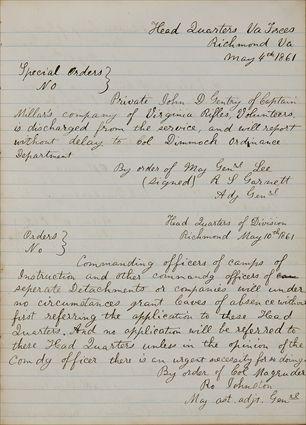 Head Quarters Va Forces
Richmond Va
May 4th 1861
Special Orders }
No
Private John D Gentry of Captain
Millar's company of Virginia Rifles, Volunteers,
is discharged from the service, and will report
without delay to Col Dimmock Ordinance
Department
By order of May Genrl Lee
(Signed) R S Garnett
Adj Genrl
Head Quarters of Division
Richmond May 10th 1861
Orders }
No
Commanding officers of camps of
Instruction and other commandg officers of
seperate Detachments or companies will under
no circumstances grant leaves of absence without
first referring the application to these Head
Quarters. And no application will be referred to
these Head Quarters unless in the opinion of the
Comdg officer there is an urgent necessity for so doing
By order of Col Magruder
Ro Johnston
May ast. adjt. Genrl